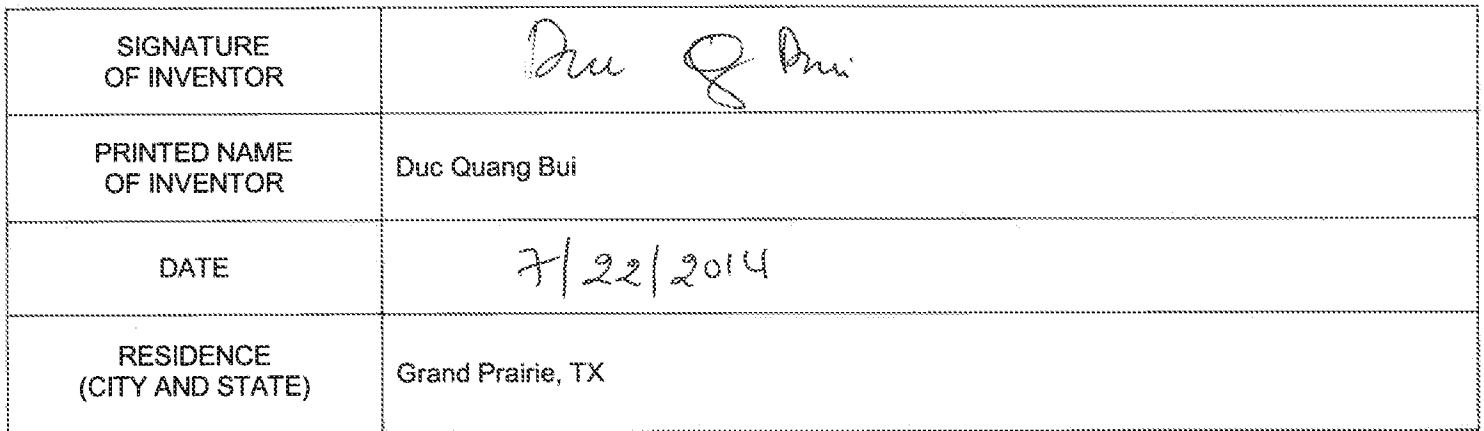 SIGNATURE
OF INVENTOR
Duc Q Bui
PRINTED NAME
OF INVENTOR
Duc Quang Bui
DATE
7/22/2014
RESIDENCE
(CITY AND STATE)
Grand Prairie, TX